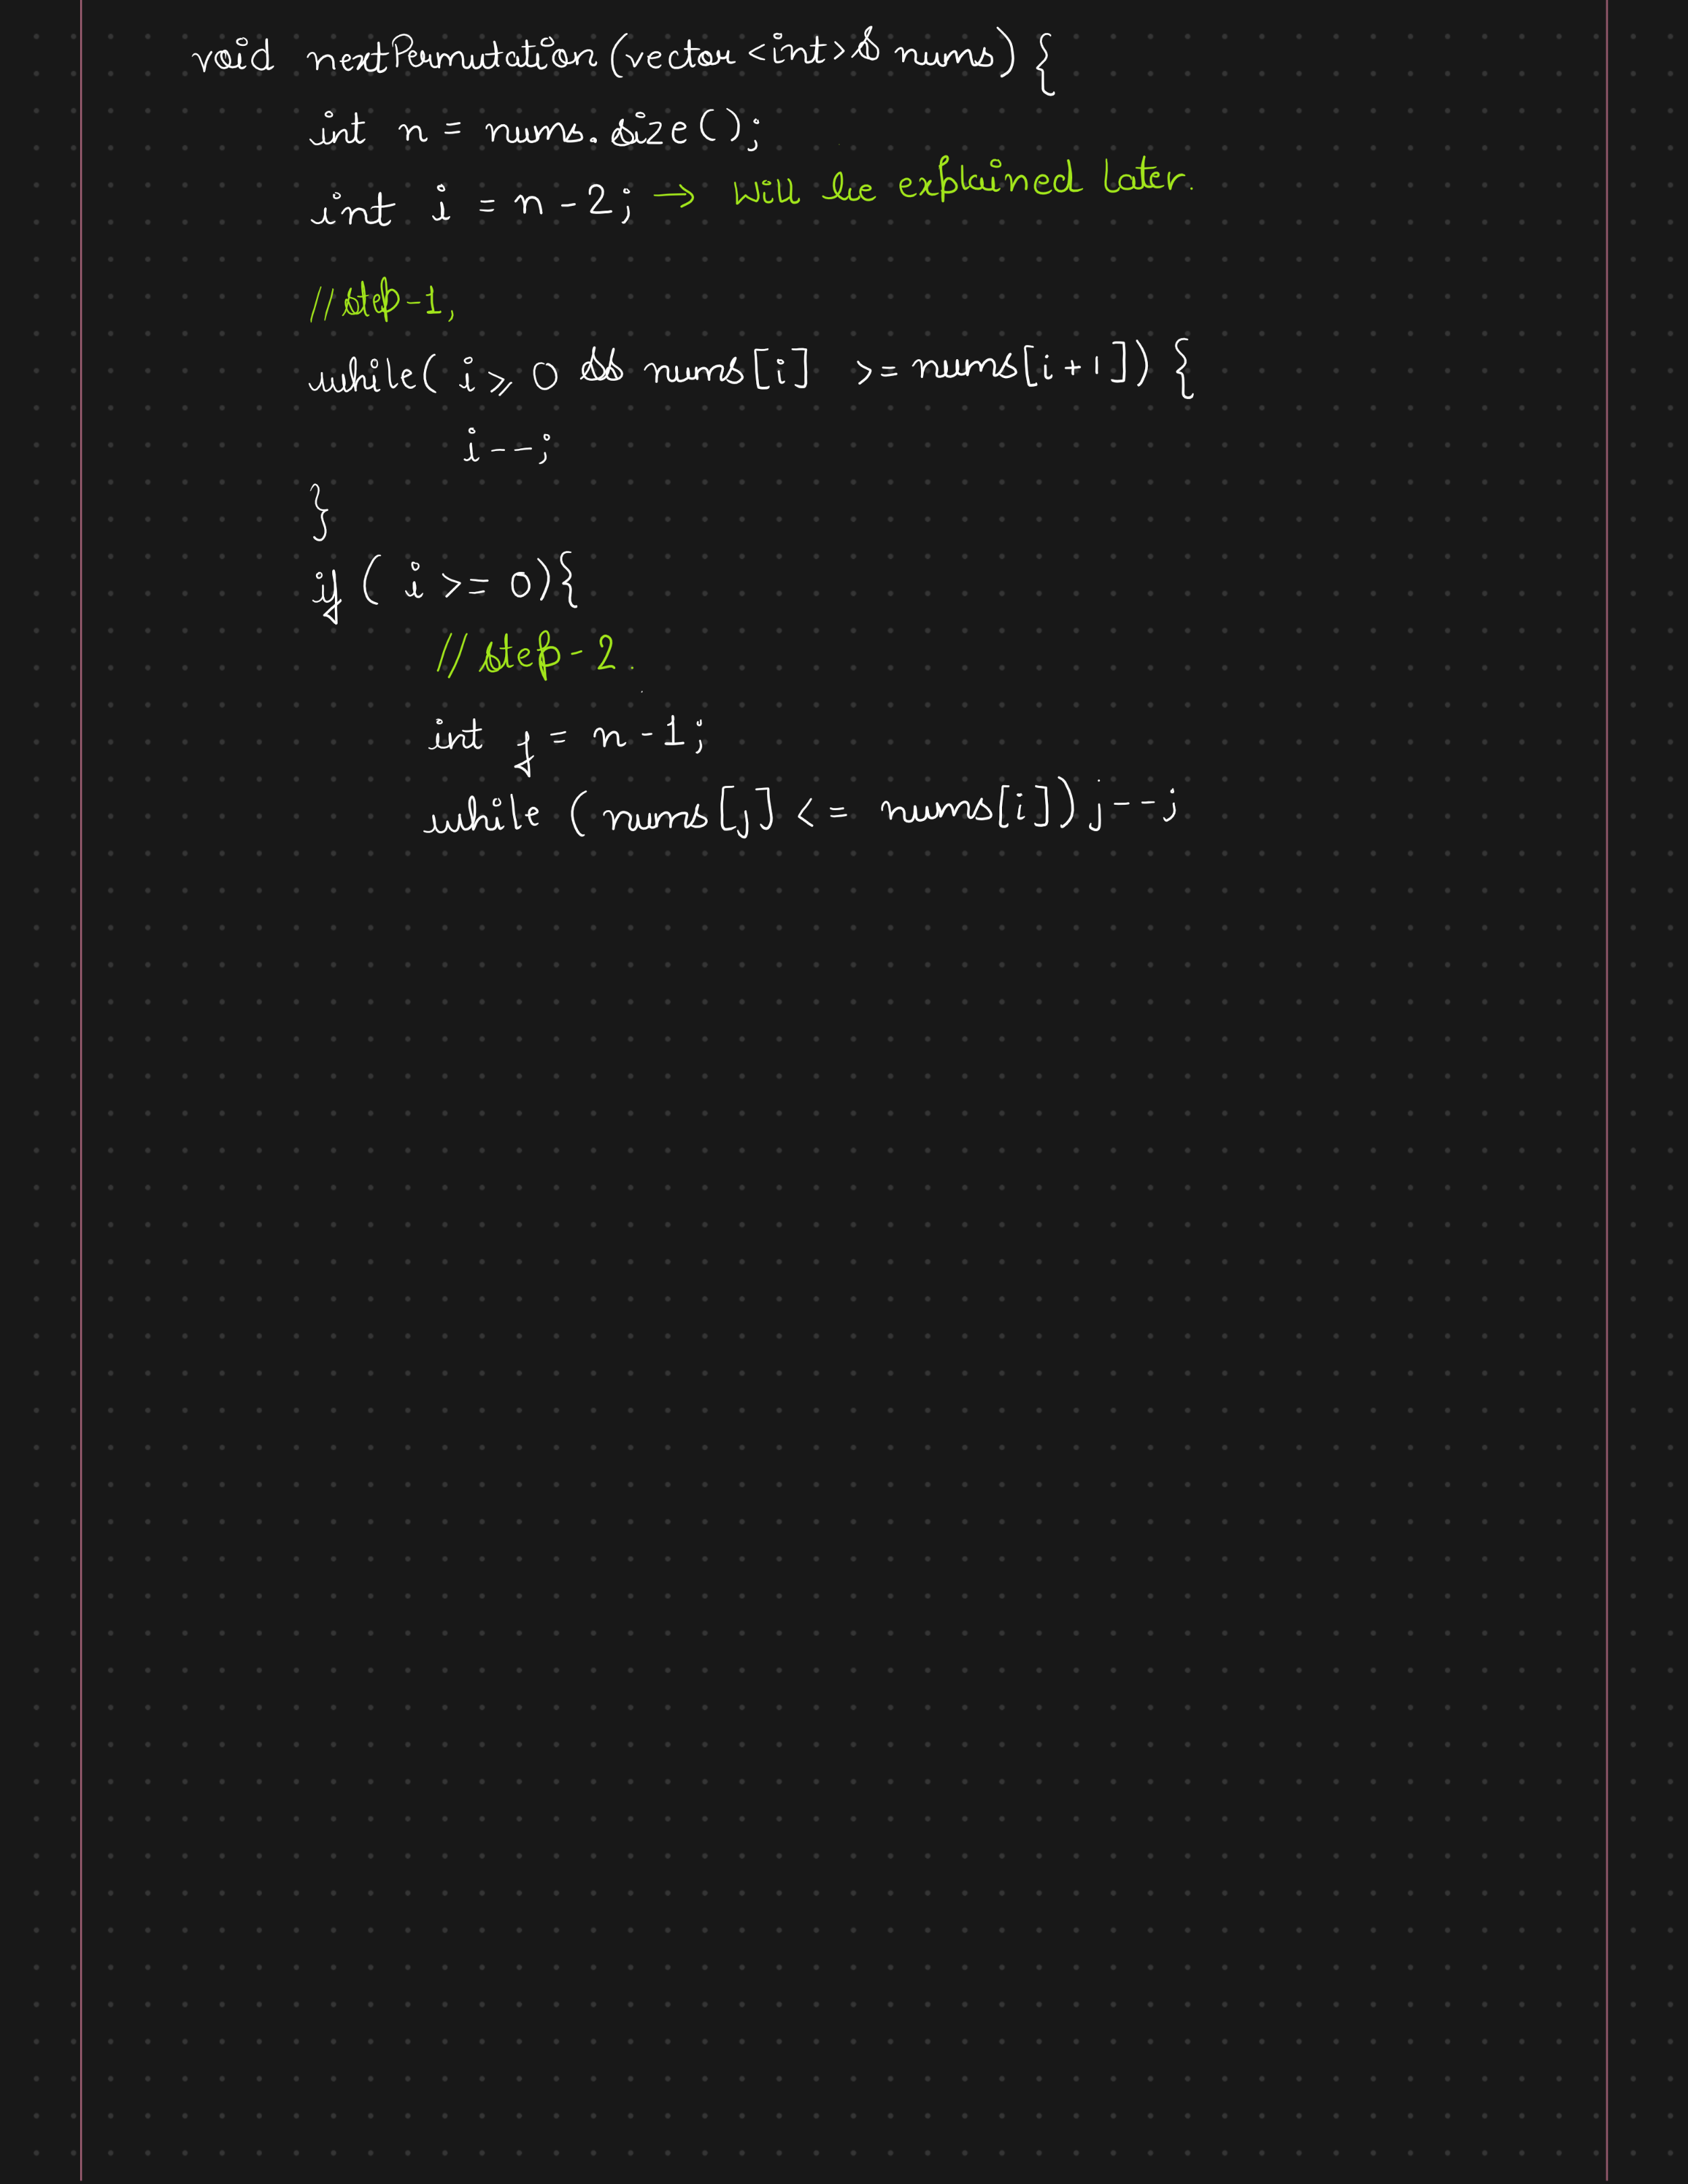 void nextPermutation (vector <int>& nums) {
int n = nums.size();
int i = n - 2; → Will be explained later.
// step-1,
while( i ⩾ 0 && nums[i] >= nums[i+1]) {
i--;
}
if ( i >= 0){
// step-2.
int j = n-1;
while (nums[j] <= nums[i]) j--;